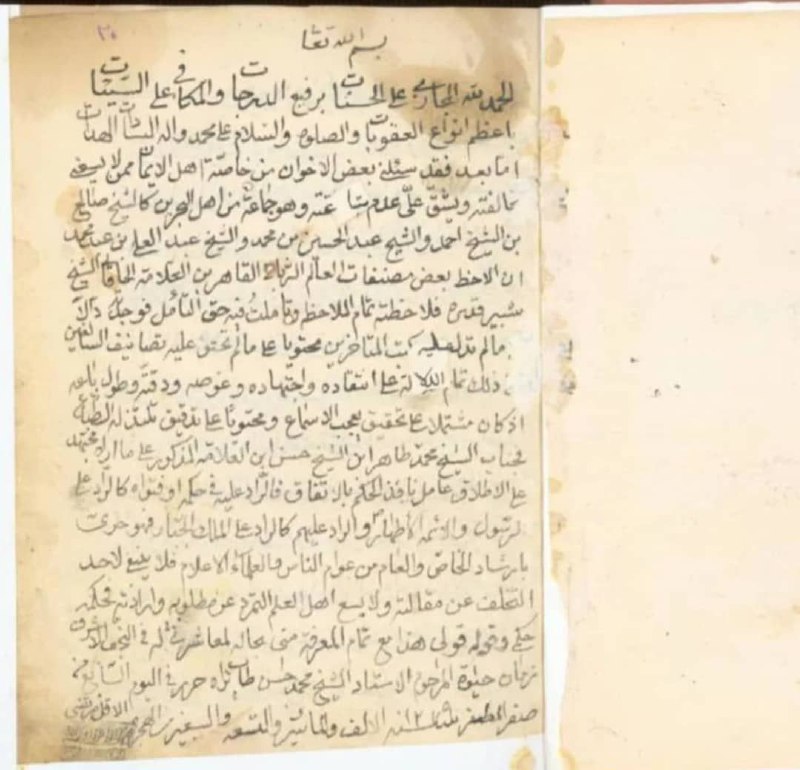 بسم الله تعا
الحمد لله المجازي على الحسنات برفيع الدرجات والمكافي على السيئات
باعظم انواع العقوبات والصلوه والسلام على محمد واله السادات الهداة
اما بعد فقد سئلني بعض الاخوان من خاصة اهل الايمان ممن لا يسعني
مخالفته ويشق علي عدم وهو جماعة من اهل البحرين كالشيخ صالح
بن الشيخ احمد والشيخ عبد الحسين بن محمد والشيخ عبد العلي بن عبد محمد
ان الاحظ بعض مصنفات العالم الرباني القاهر بن العلامة الخاقاني الشيخ
شبير فلاحظته تمام الملاحظه وتاملت فيه حق التأمل فوجدته دالا
مالم تدل عليه كتب المتاخرين محتويا على مالم تحتو عليه تصانيف السابقين
ذلك تمام الدلالة على انتقاده واجتهاده وغوصه ودقته وطول باعه
اذ كان مشتملا على تحقيق يعجب الاسماع ومحتويا على تدقيق تلتذ له الطباع
فجناب الشيخ محمد طاهر ابن الشيخ حسن ابن العلامة المذكور على ما اراه مجتهد
على الاطلاق عامل نافذ الحكم بالاتفاق فالراد عليه في حكمه او فتواه كالراد على
الرسول والائمه الاطهار والراد عليهم كالراد على الملك الجبار فهو حري
بارشاد الخاص والعام من عوام الناس والعلماء الاعلام فلا ينبغي لاحد
التخلف عن مقالته ولا يسع اهل العلم التمرد عن مطلوبه وارادته فحكمه
حكمي وقوله قولي هذا مع تمام المعرفة مني بحاله لمعاشرتي له في النجف الاشرف
زمان حيوة المرحوم الاستاد الشيخ محمد حسن طاب ثراه حرر في اليوم السابع من
صفر المظفر سنه الالف والمائتين والتسعه والسبعين من الهجره
الاقل
٢٥